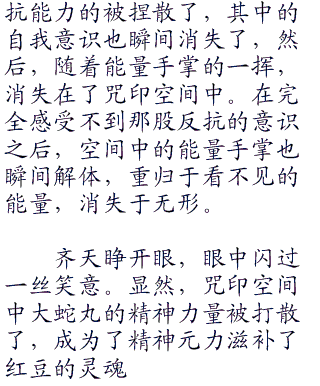 抗能力的被捏散了，其中的
自我意识也瞬间消失了，然
后，随着能量手掌的一挥，
消失在了咒印空间中。在完
全感受不到那股反抗的意识
之后，空间中的能量手掌也
瞬间解体，重归于看不见的
能量，消失于无形。
齐天睁开眼，眼中闪过
一丝笑意。显然，咒印空间
中大蛇丸的精神力量被打散
了，成为了精神元力滋补了
红豆的灵魂